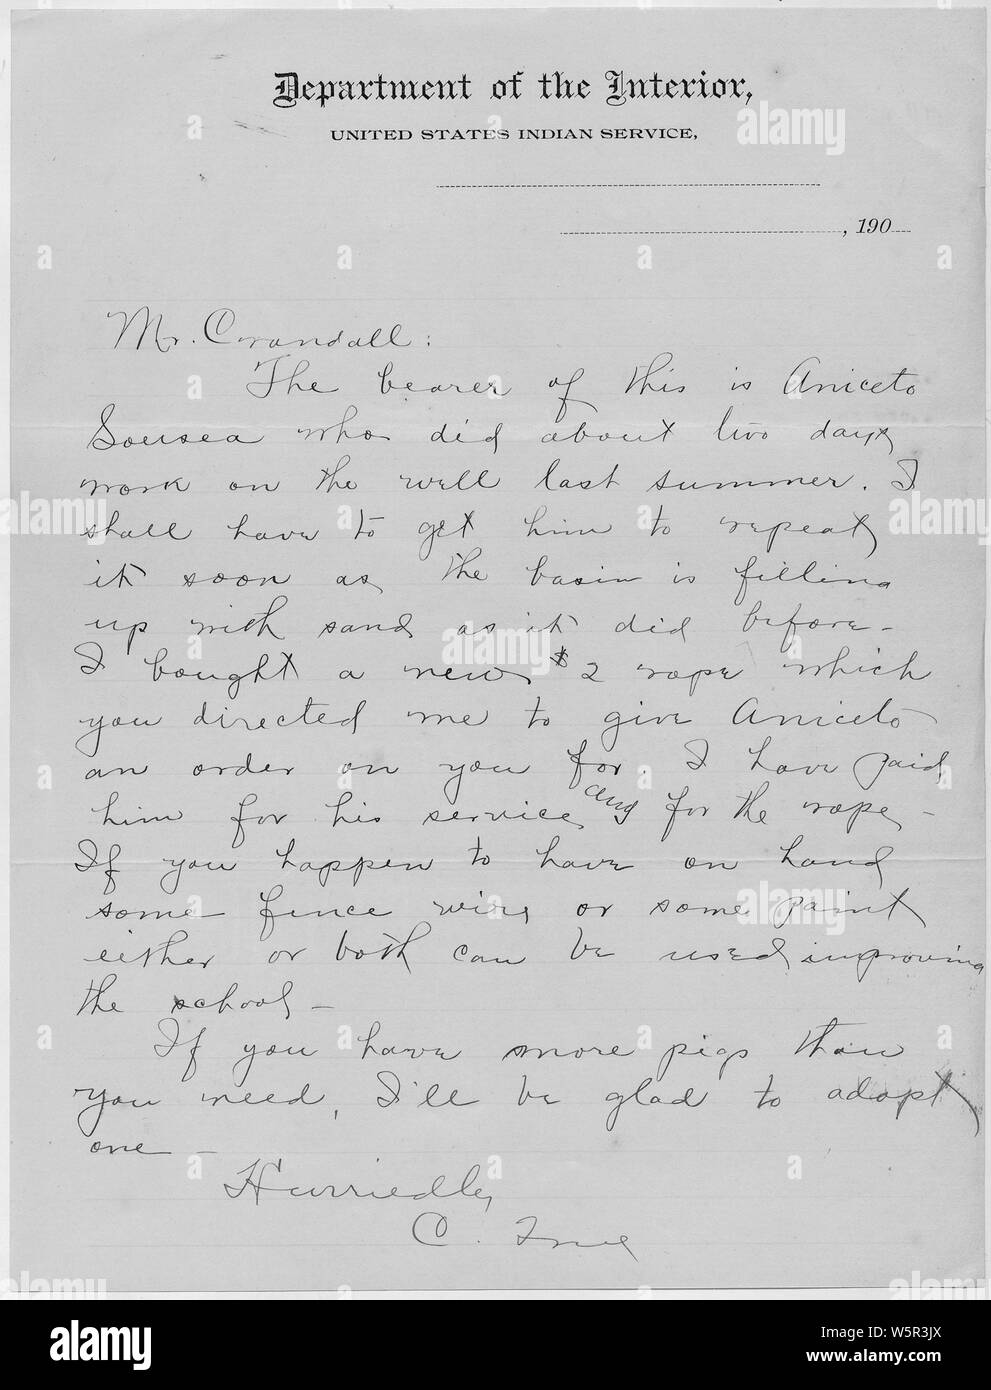 Department of the Interior,
UNITED STATES INDIAN SERVICE,
, 190
Mr. Crandall:
The bearer of this is Aniceto
Sousea who did about two days
work on the well last summer. I
shall have to get him to repeat
it soon as the basin is filling
up with sand as it did before -
I bought a new $2 rope which
you directed me to give Aniceto
an order on you for. I have paid
him for his service and for the rope -
If you happen to have on hand
some fence wire or some paint
either or both can be used improving
the school -
If you have more pigs than
you need, I'll be glad to adopt
one -
Hurriedly
C. True
a alamy
alamy
Image ID: W5R3JX
www.alamy.com